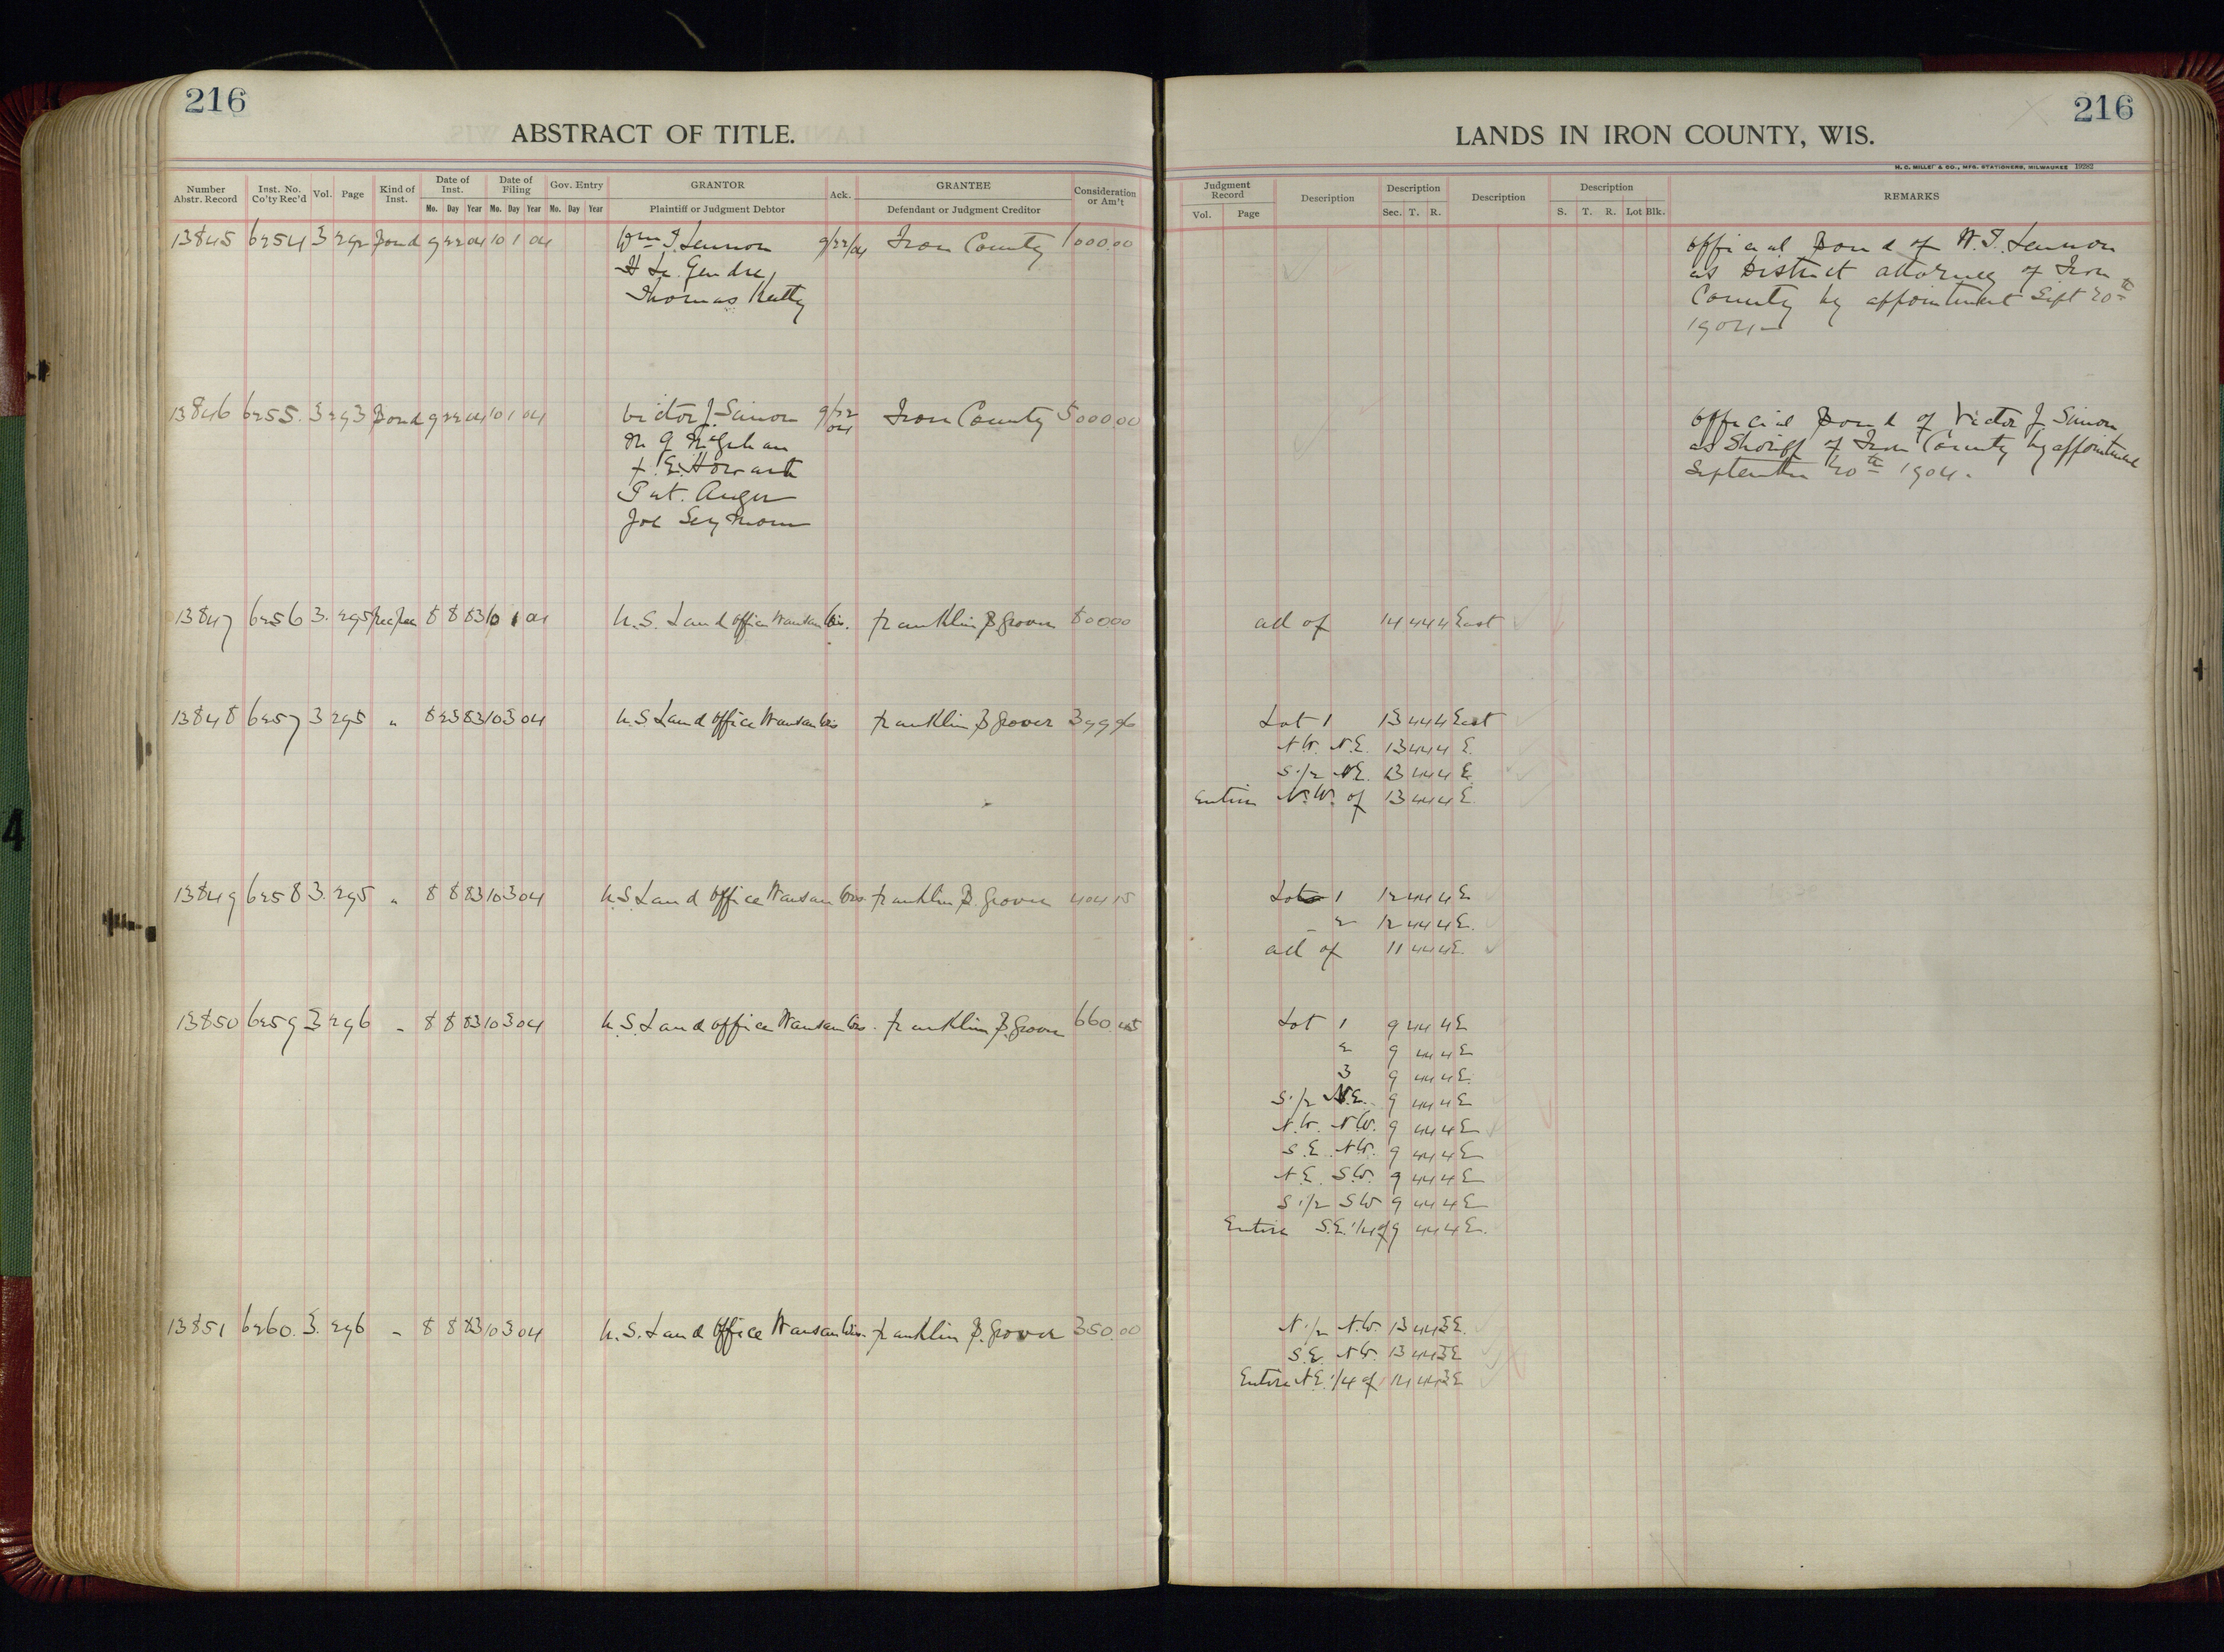 216
ABSTRACT OF TITLE.
Number Abstr. Record Inst. No. Co'ty Rec'd Vol. Page Kind of Inst. Date of Inst. Date of Filing Gov. Entry GRANTOR Ack. GRANTEE Consideration or Am't
Mo. Day Year Mo. Day Year Mo. Day Year Plaintiff or Judgment Debtor Defendant or Judgment Creditor
13845 6254 3 292 Bond 9 22 04 10 1 04 Wm T. Lennon 9/22/04 Iron County 1000.00
H Le. Gendre,
Thomas
13846 6255. 3 293 Bond 9 22 04 10 1 04 Victor J. Simon 9/22 04 Iron County 5000.00
E. Howarth
Pat. Auger
Joe Seymour
13847 6256 3. 295 8 8 83 10 1 04 U.S. Land Office Wausau Wis. Franklin B. Grover 800 00
13848 6257 3 295 " 8 23 83 10 3 04 U.S Land Office Wausau Wis Franklin B Grover 399 96
13849 6258 3. 295 " 8 8 83 10 3 04 U.S Land Office Wausau Wis. Franklin B. Grover 404 15
13850 6259 3 296 " 8 8 83 10 3 04 U.S Land Office Wausau Wis. Franklin B. Grover 660.
13851 6260. 3. 296 " 8 8 83 10 3 04 U.S. Land Office Wausau Wis. Franklin B. Grover 350.00
216
LANDS IN IRON COUNTY, WIS.
H. C. MILLER & CO., MFG. STATIONERS, MILWAUKEE 19282
Judgment Record Description Description Description Description REMARKS
Vol. Page Sec. T. R. S. T. R. Lot Blk.
Official Bond of W. T. Lennon
as District Attorney of Iron
County by appointment Sept 20th
1904
Official Bond of Victor J. Simon
as Sheriff of Iron County by appointment
September 20th 1904.
all of 14 44 4 East
Lot 1 13 44 4 East
N.W. N.E. 13 44 4 E.
S. 1/2 N.E. 13 44 4 E.
Entire N.W. of 13 44 4 E.
Lot 1 12 44 4 E
" 2 12 44 4 E.
all of 11 44 4 E.
Lot 1 9 44 4 E
2 9 44 4 E
3 9 44 4 E.
S. 1/2 N.E. 9 44 4 E
N.W. N.W. 9 44 4 E
S.E. N.W. 9 44 4 E
N.E. S.W. 9 44 4 E
S 1/2 S W 9 44 4 E
Entire S.E. 1/4 of 9 44 4 E.
N. 1/2 N.W. 13 44 3 E.
S.E. N.W. 13 44 3 E
Entire N.E. 1/4 of 14 44 3 E
4